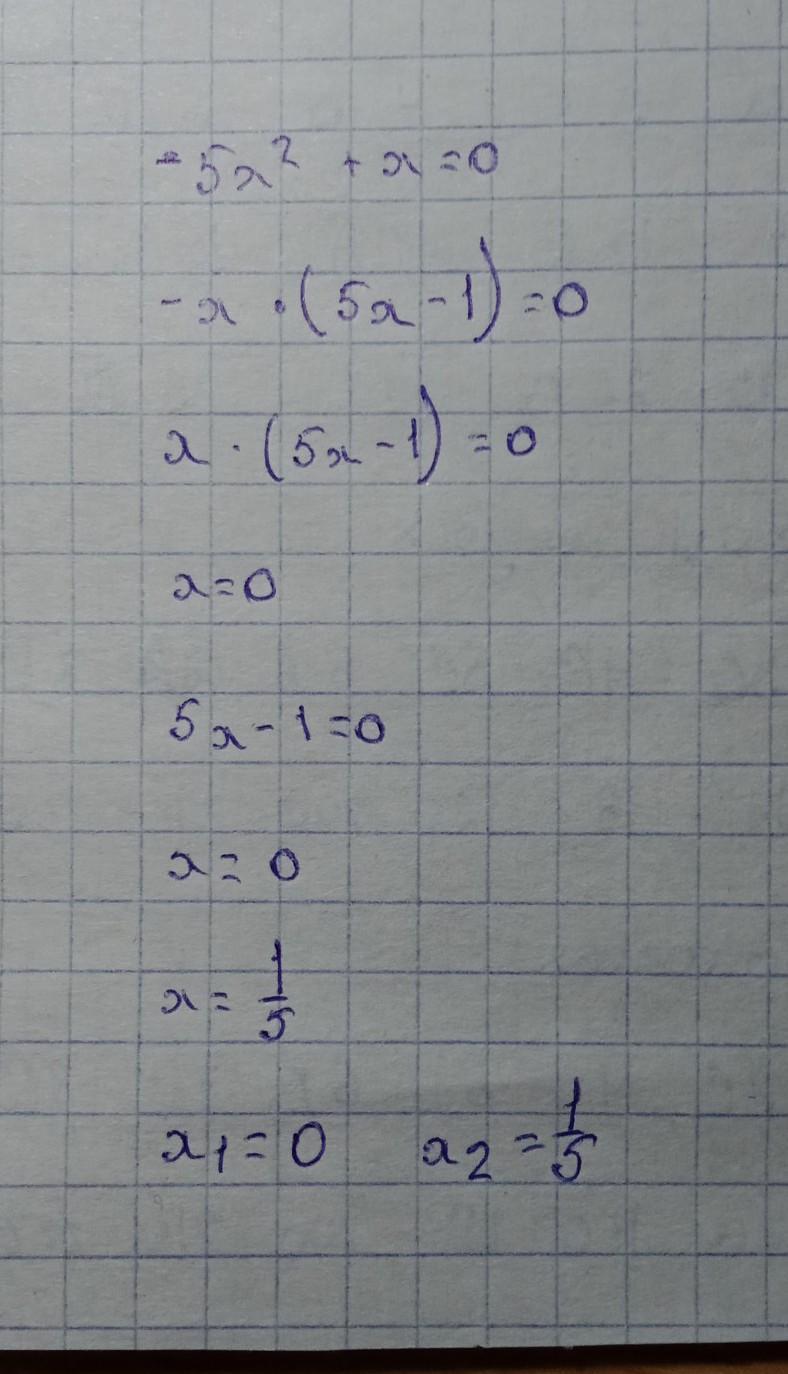 -5x² + x = 0
-x · (5x - 1) = 0
x · (5x - 1) = 0
x = 0
5x - 1 = 0
x = 0
x = 1/5
x₁ = 0 x₂ = 1/5